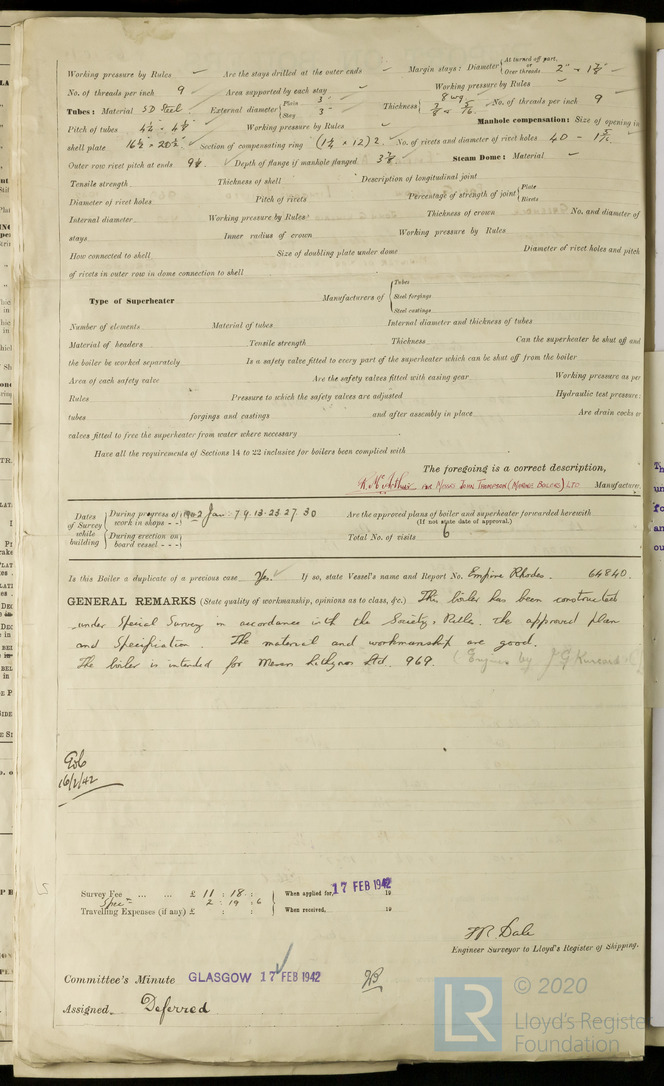 Working pressure by Rules Are the stays drilled at the outer ends Margin stays: Diameter { At turned off part, or Over threads 2" - 1⅞"
No. of threads per inch 9 Area supported by each stay Working pressure by Rules
Tubes: Material SD Steel External diameter { Plain 3" Stay 3" Thickness { 8 wg No. of threads per inch 9
Pitch of tubes Working pressure by Rules Manhole compensation: Size of opening in
shell plate 16½ × 20½" Section of compensating ring No. of rivets and diameter of rivet holes 40 -
Outer row rivet pitch at ends Depth of flange if manhole flanged Steam Dome: Material
Tensile strength Thickness of shell Description of longitudinal joint
Diameter of rivet holes Pitch of rivets Percentage of strength of joint { Plate Rivets
Internal diameter Working pressure by Rules Thickness of crown No. and diameter of
stays Inner radius of crown Working pressure by Rules
How connected to shell Size of doubling plate under dome Diameter of rivet holes and pitch
of rivets in outer row in dome connection to shell
Type of Superheater Manufacturers of { Tubes Steel forgings Steel castings
Number of elements Material of tubes Internal diameter and thickness of tubes
Material of headers Tensile strength Thickness Can the superheater be shut off and
the boiler be worked separately Is a safety valve fitted to every part of the superheater which can be shut off from the boiler
Area of each safety valve Are the safety valves fitted with easing gear Working pressure as per
Rules Pressure to which the safety valves are adjusted Hydraulic test pressure:
tubes forgings and castings and after assembly in place Are drain cocks or
valves fitted to free the superheater from water where necessary
Have all the requirements of Sections 14 to 22 inclusive for boilers been complied with
The foregoing is a correct description,
for Messrs John Thompson (Motherwell Boilers) Ltd Manufacturer.
Dates of Survey while building { During progress of work in shops - - 1942 Jan: 7. 9. 13. 23. 27. 30 Are the approved plans of boiler and superheater forwarded herewith
(If not state date of approval.)
During erection on board vessel - - - Total No. of visits 6
Is this Boiler a duplicate of a previous case Yes. If so, state Vessel's name and Report No. Empire Rhodes. 64840.
GENERAL REMARKS (State quality of workmanship, opinions as to class, &c.) This boiler has been constructed
under Special Survey in accordance with the Society's Rules, the approved plan
and Specification. The material and workmanship are good.
The boiler is intended for Messrs Lithgows Ltd. 969. (Engines by J G Kincaid
16/2/42
Survey Fee ... ... £ 11 : 18 : When applied for, 17 FEB 1942 19
Spec 2 : 19 : 6
Travelling Expenses (if any) £ : : When received, 19
Dale
Engineer Surveyor to Lloyd's Register of Shipping.
Committee's Minute GLASGOW 17 FEB 1942
Assigned Deferred
LR © 2020
Lloyd's Register
Foundation